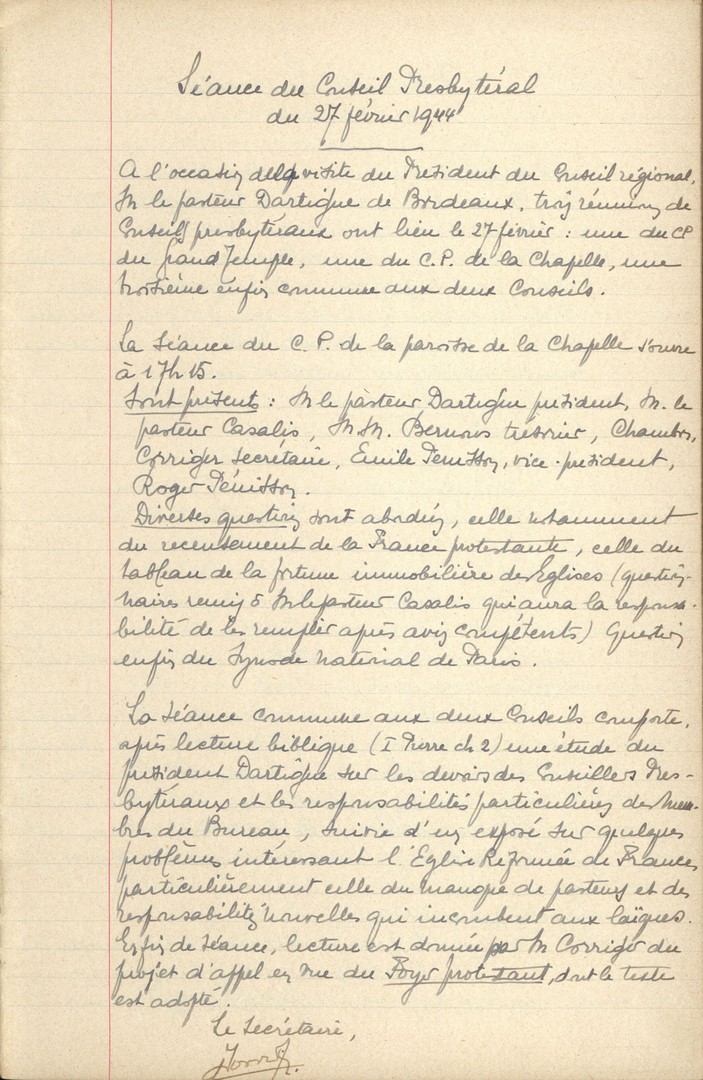 Séance du Conseil Presbytéral
du 27 février 1944
A l'occasion de la visite du Président du Conseil régional,
M le pasteur Dartigue de Bordeaux, trois réunions de
Conseils presbytéraux ont lieu le 27 février : une du CP
du Grand Temple, une du C.P. de la Chapelle, une
troisième enfin commune aux deux Conseils.
La Séance du C.P. de la paroisse de la Chapelle s'ouvre
à 17h15.
Sont présents : M le pasteur Dartigue président, M. le
pasteur Casalis, M.M. Bernous trésorier, Chambon,
Corriger secrétaire, Emile Pénisson, vice-président,
Roger Pénisson.
Diverses questions sont abordées, celle notamment
du recensement de la France protestante, celle du
tableau de la fortune immobilière des Eglises (question-
naires remis à M le pasteur Casalis qui aura la responsa-
bilité de les remplir après avis compétents) Question
enfin du Synode national de Paris.
La Séance commune aux deux Conseils comporte,
après lecture biblique (I Pierre ch 2) une étude du
président Dartigue sur les devoirs des Conseillers Pres-
bytéraux et les responsabilités particulières des Mem-
bres du Bureau, suivie d'un exposé sur quelques
problèmes intéressant l'Eglise Réformée de France,
particulièrement celle du manque de pasteurs et des
responsabilités nouvelles qui incombent aux laïques.
En fin de séance, lecture est donnée par M Corriger du
projet d'appel en vue du Foyer protestant, dont le texte
est adopté.
Le Secrétaire,